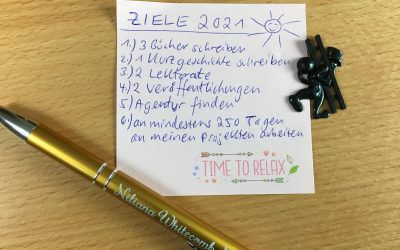 ZIELE 2021
1.) 3 Bücher schreiben
2.) 1 Kurzgeschichte schreiben
3.) 2 Lektorate
4.) 2 Veröffentlichungen
5) Agentur finden
6) an mindestens 250 Tagen
an meinen Projekten arbeiten
TIME TO RELAX
Nitiana Whitecomb